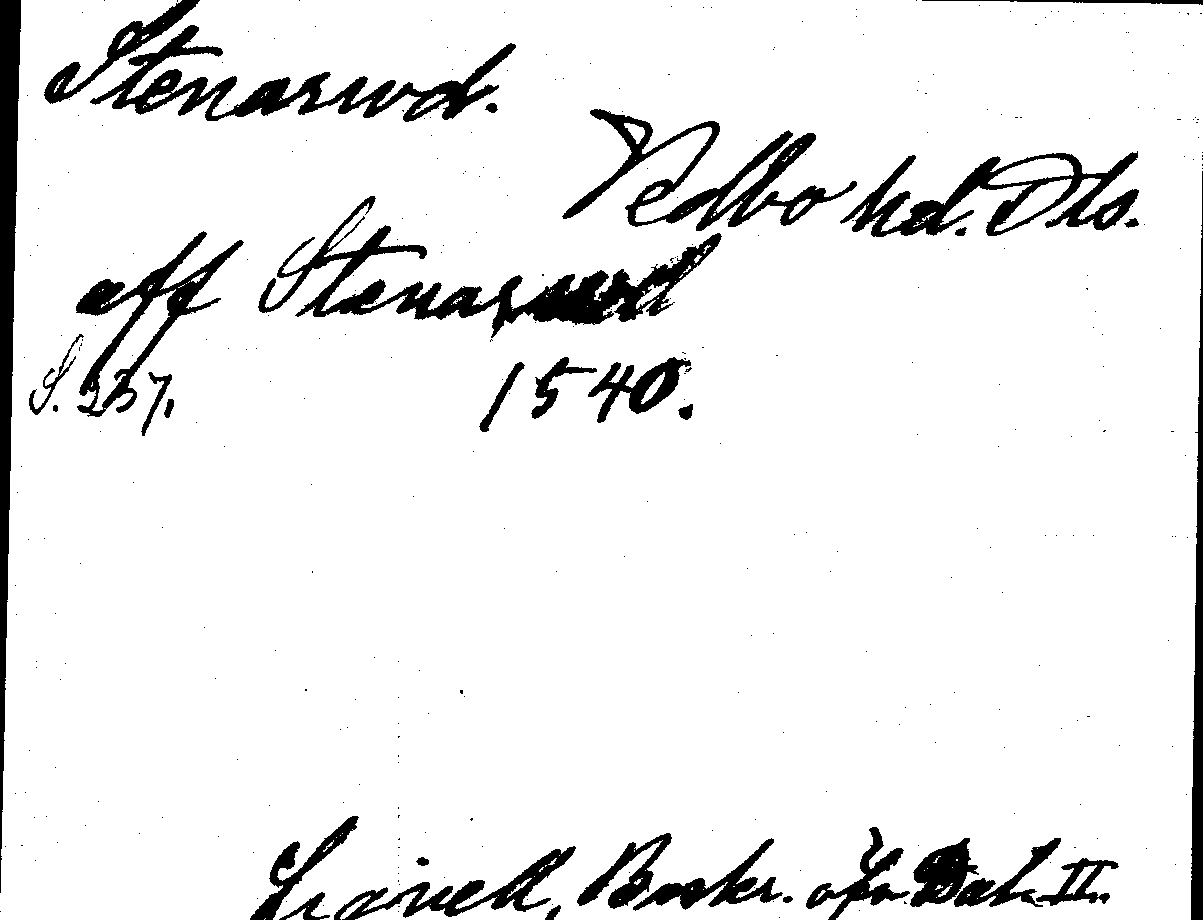 Stenarwd.
Vedbo hd. Dls.
aff Stenarwd
S. 237. 1540.
Lignell, Beskr. öfv. Dal. II.